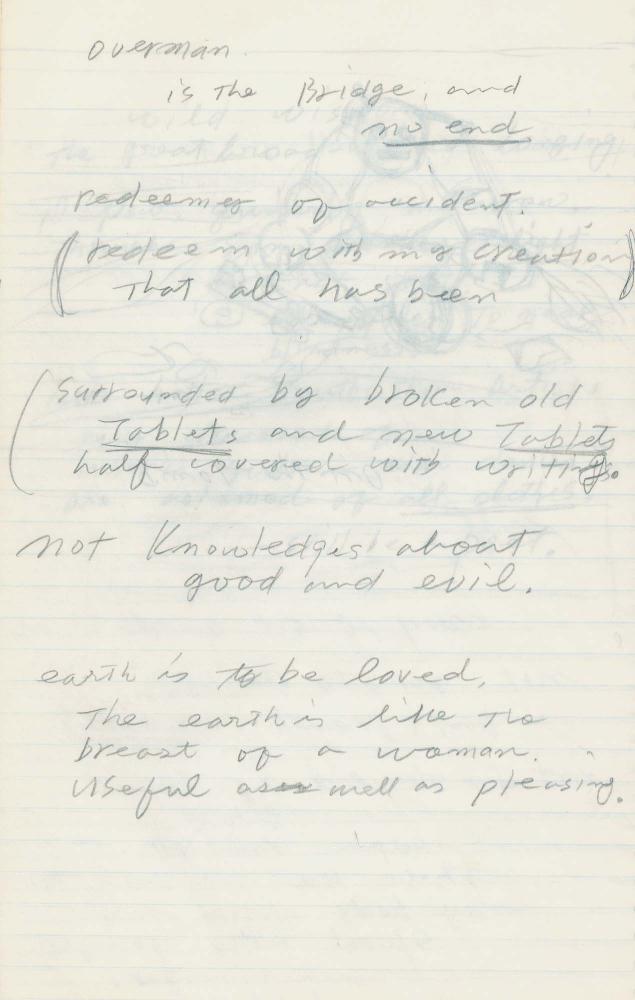 overman.
is the Bridge, and
no end
redeemer of accident.
(redeem with my creation)
That all has been
(Surrounded by broken old
Tablets and new Tablets
half covered with writings.
not Knowledges about
good and evil.
earth is to be loved,
The earth is like the
breast of a woman.
useful as well as pleasing.